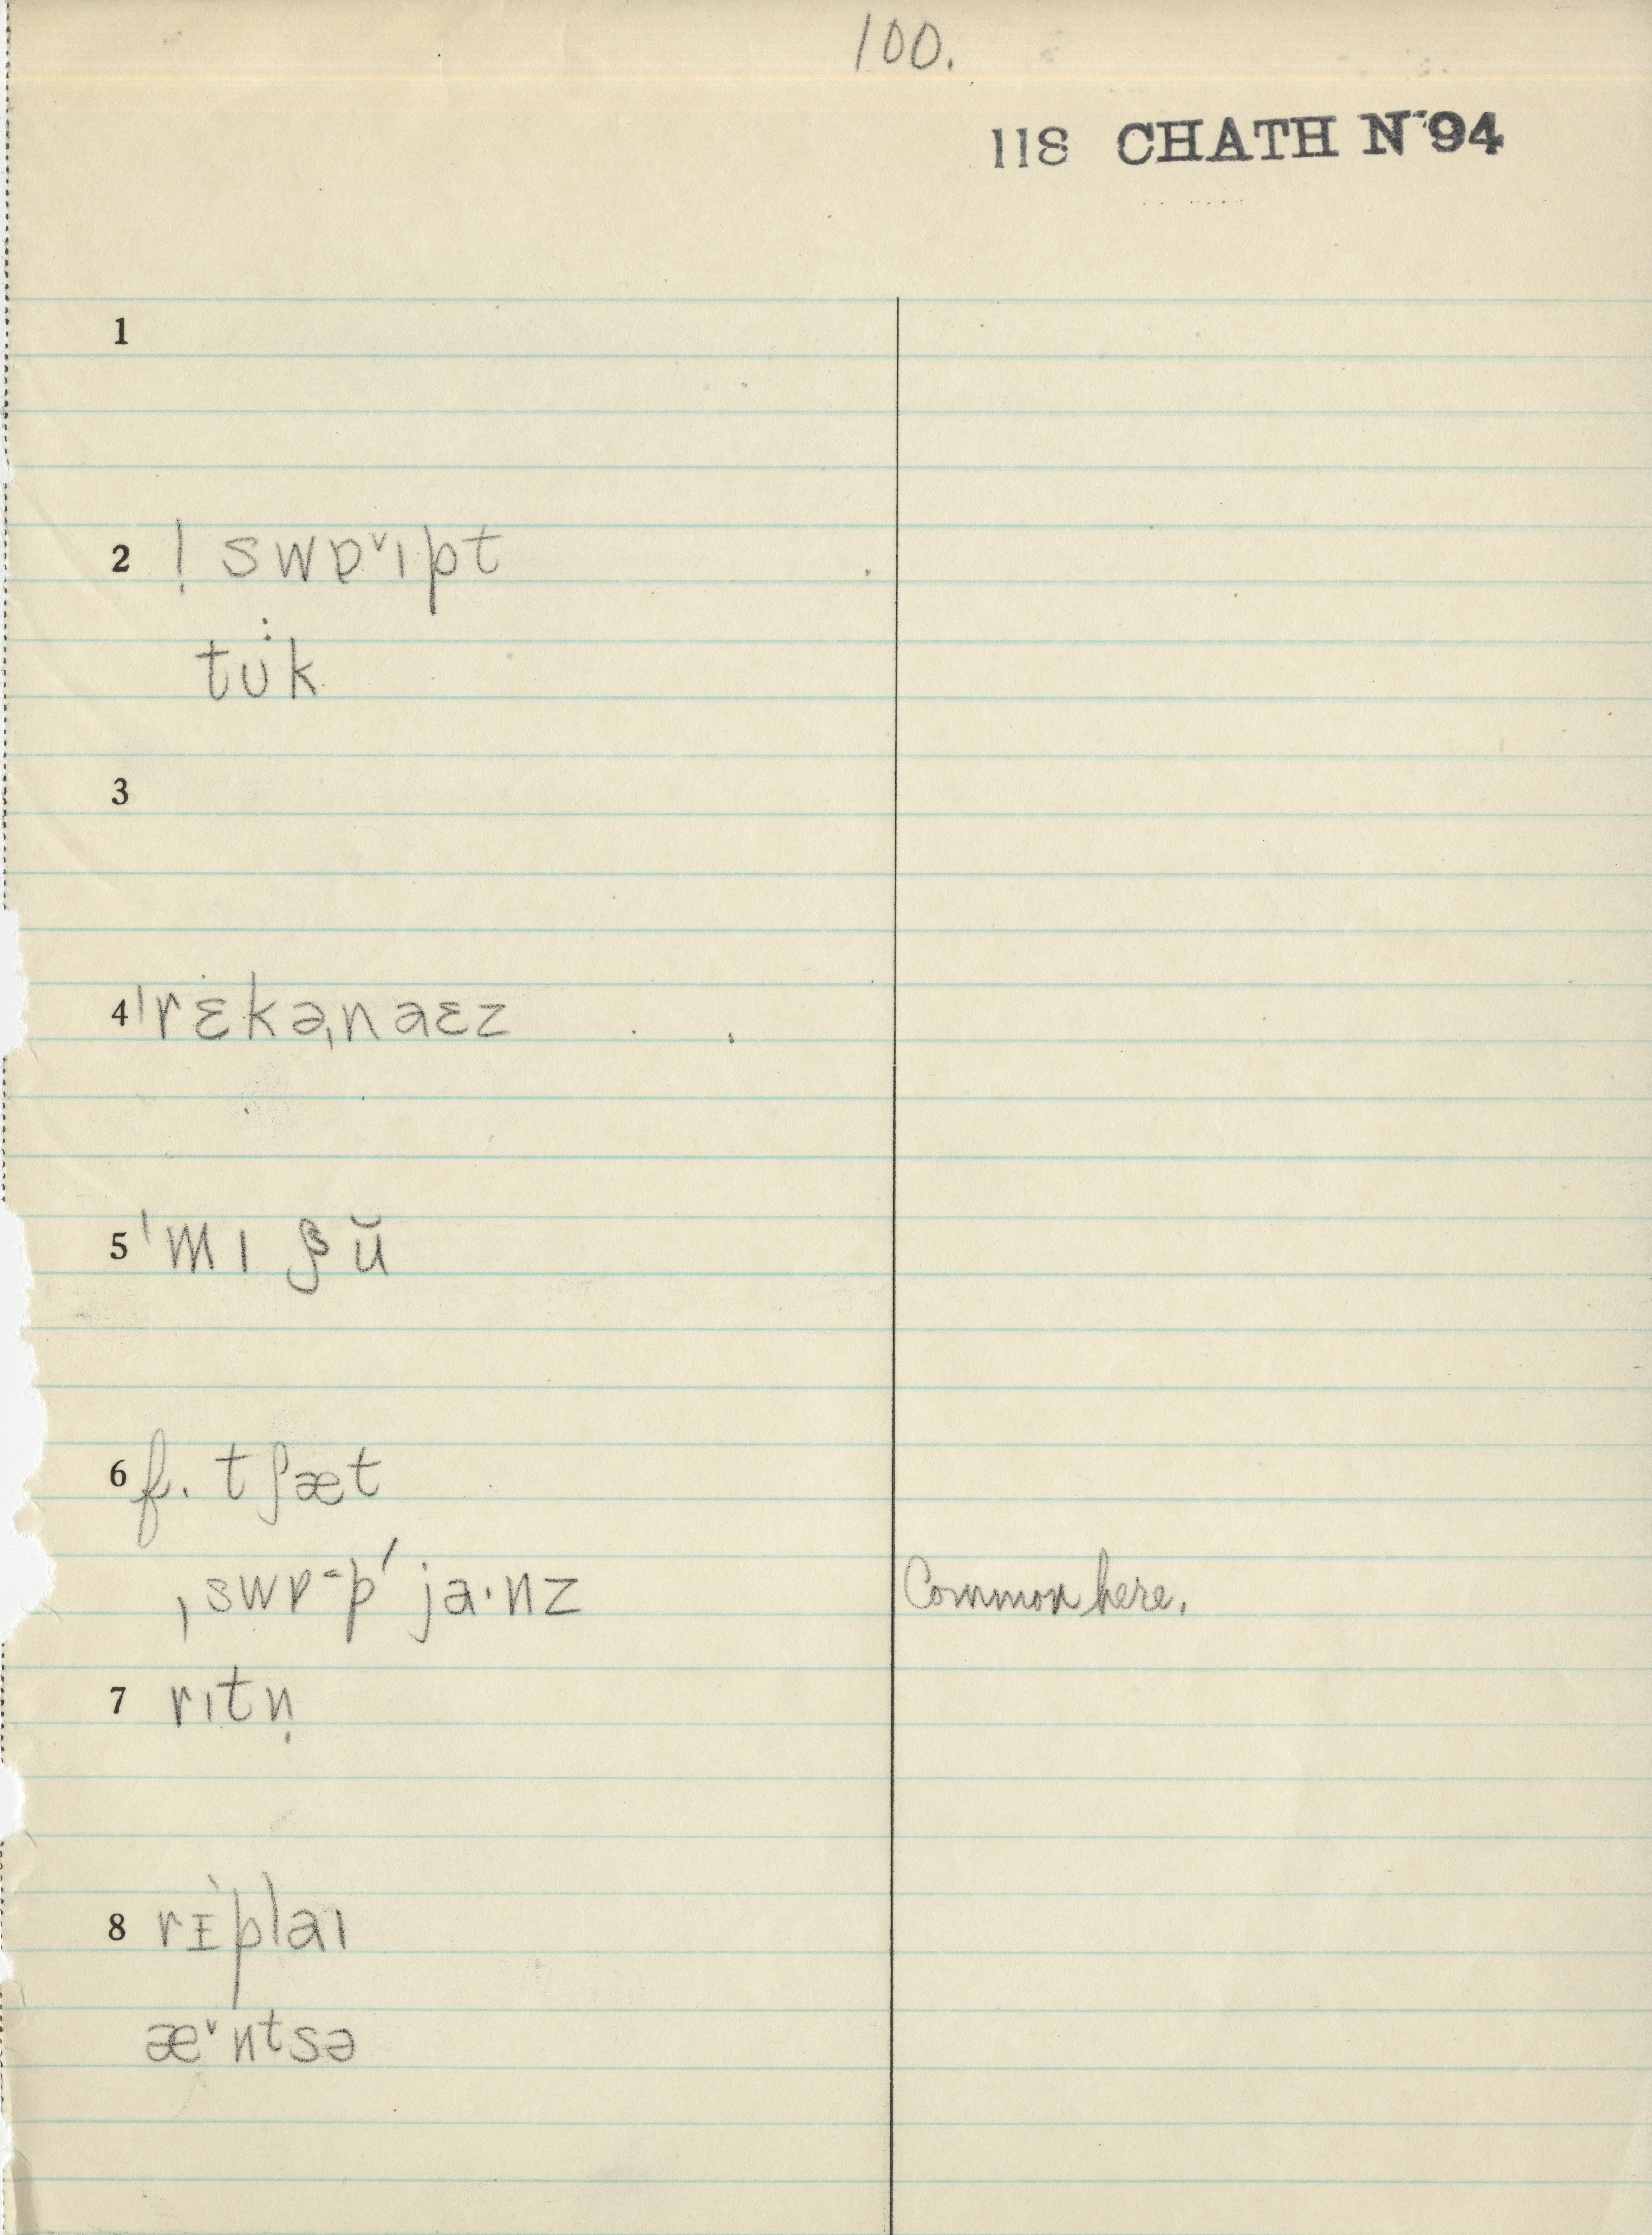 100.
118 CHATH N 94
1
2 ! swɒ˅ıpt
tu̇k
3
4 ˈrɛ̇kəˌnaɛz
5 ˈmı ʃŭ
6 f. tʃæt
ˌswɒ˂pˈjɑ·nz Common here.
7 rıtṇ
8 rɪ̀plaı
æ˅ntsə